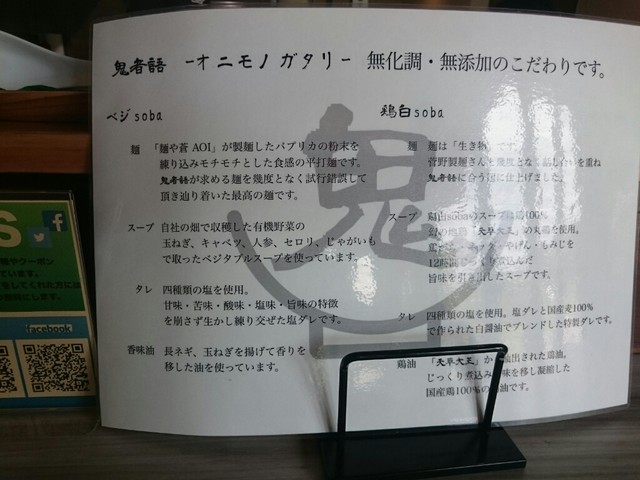 鬼者語 －オニモノガタリ－ 無化調・無添加のこだわりです。
ベジsoba
麺 「麺や蒼 AOI」が製麺したパプリカの粉末を
練り込みモチモチとした食感の平打麺です。
鬼者語が求める麺を幾度となく試行錯誤して
頂き辿り着いた最高の麺です。
スープ 自社の畑で収穫した有機野菜の
玉ねぎ、キャベツ、人参、セロリ、じゃがいも
で取ったベジタブルスープを使っています。
タレ 四種類の塩を使用。
甘味・苦味・酸味・塩味・旨味の特徴
を崩さず生かし練り交ぜた塩ダレです。
香味油 長ネギ、玉ねぎを揚げて香りを
移した油を使っています。
鶏白soba
麺 麺は「生き物」です。
菅野製麺さんと幾度となく話し合いを重ね
鬼者語に合う麺に仕上げました。
スープ 鶏白sobaのスープは鶏100%
幻の地鶏「天草大王」の丸鶏を使用。
12時間じっくり煮込んだ
旨味を引き出したスープです。
タレ 四種類の塩を使用。塩ダレと国産麦100%
で作られた白醤油でブレンドした特製ダレです。
鶏油 「天草大王」から抽出された鶏油。
じっくり煮込み旨味を移し凝縮した
国産鶏100%の鶏油です。
鬼
S
f
facebook